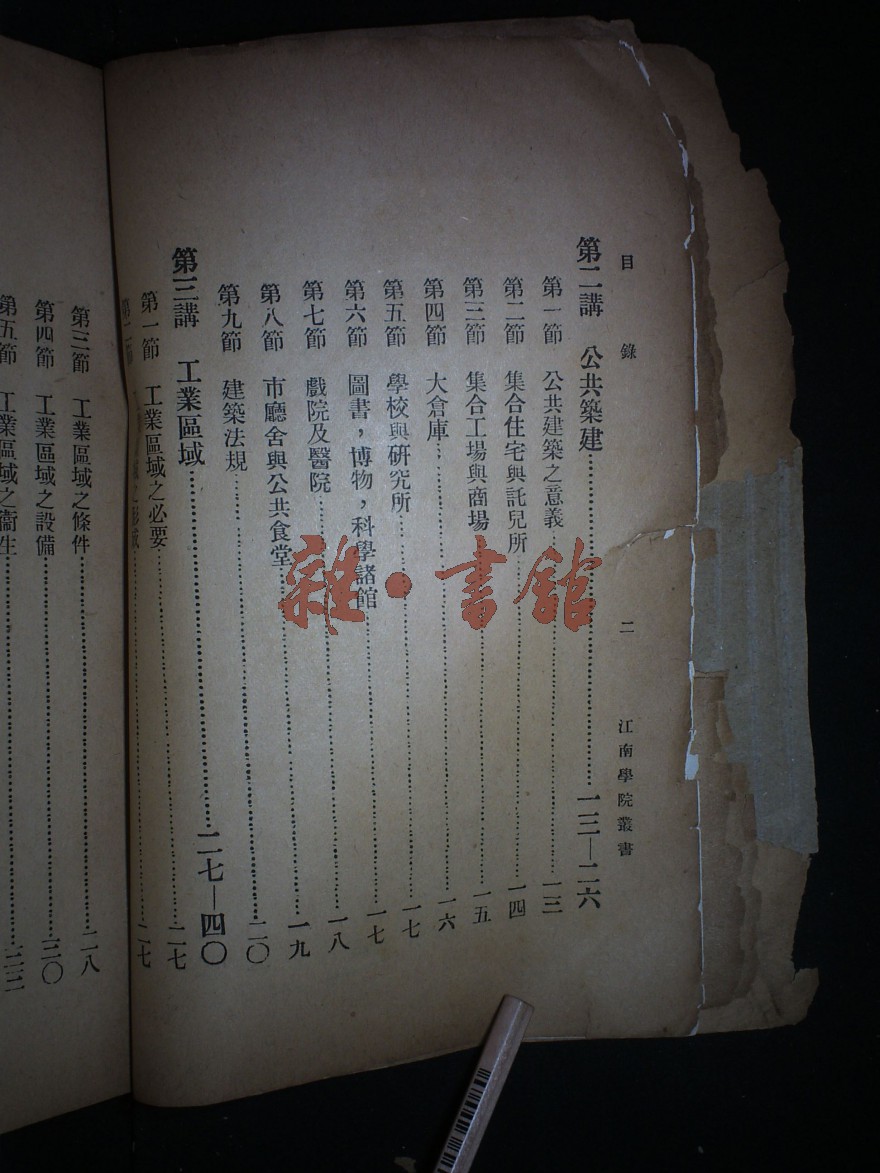 目錄 二 江南學院叢書
第二講 公共築建 一三—二六
第一節 公共建築之意義 一三
第二節 集合住宅與託兒所 一四
第三節 集合工場與商場 一五
第四節 大倉庫 一六
第五節 學校與研究所 一七
第六節 圖書，博物，科學諸館 一七
第七節 戲院及醫院 一八
第八節 市廳舍與公共食堂 一九
第九節 建築法規 二〇
第三講 工業區域 二七—四〇
第一節 工業區域之必要 二七
第二節 二七
第三節 工業區域之條件 二八
第四節 工業區域之設備 三〇
第五節 工業區域之衞生
雜·書館